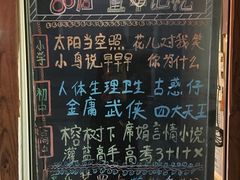 80后 童年记忆
小学
太阳当空照 花儿对我笑
小鸟说早早早 你为什么
初中
人体生理卫生 古惑仔
金庸 武侠 四大天王
高中
榕树下 席娟言情小说
灌篮高手 高考3+1+X